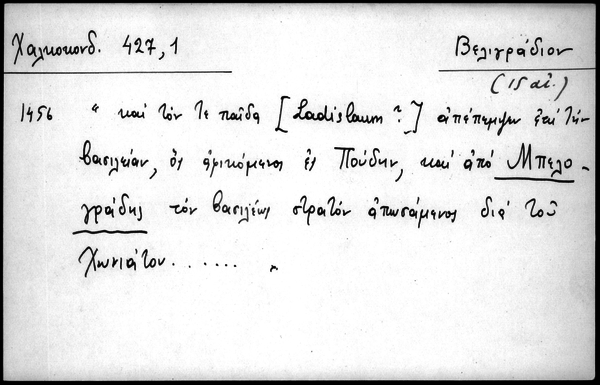 Χαλκοκονδ. 427,1
Βελιγράδιον
(15 αἰ.)
1456 " καὶ τόν τε παῖδα [Ladislaum ?] ἀπέπεμψεν ἐπὶ τὴν
βασιλείαν, ὃς ἀφικόμενος ἐς Πούδην, καὶ ἀπὸ Μπελο-
γράδης τὸν βασιλέως στρατὸν ἀπωσάμενος διὰ τοῦ
Χωνιάτου ...... "